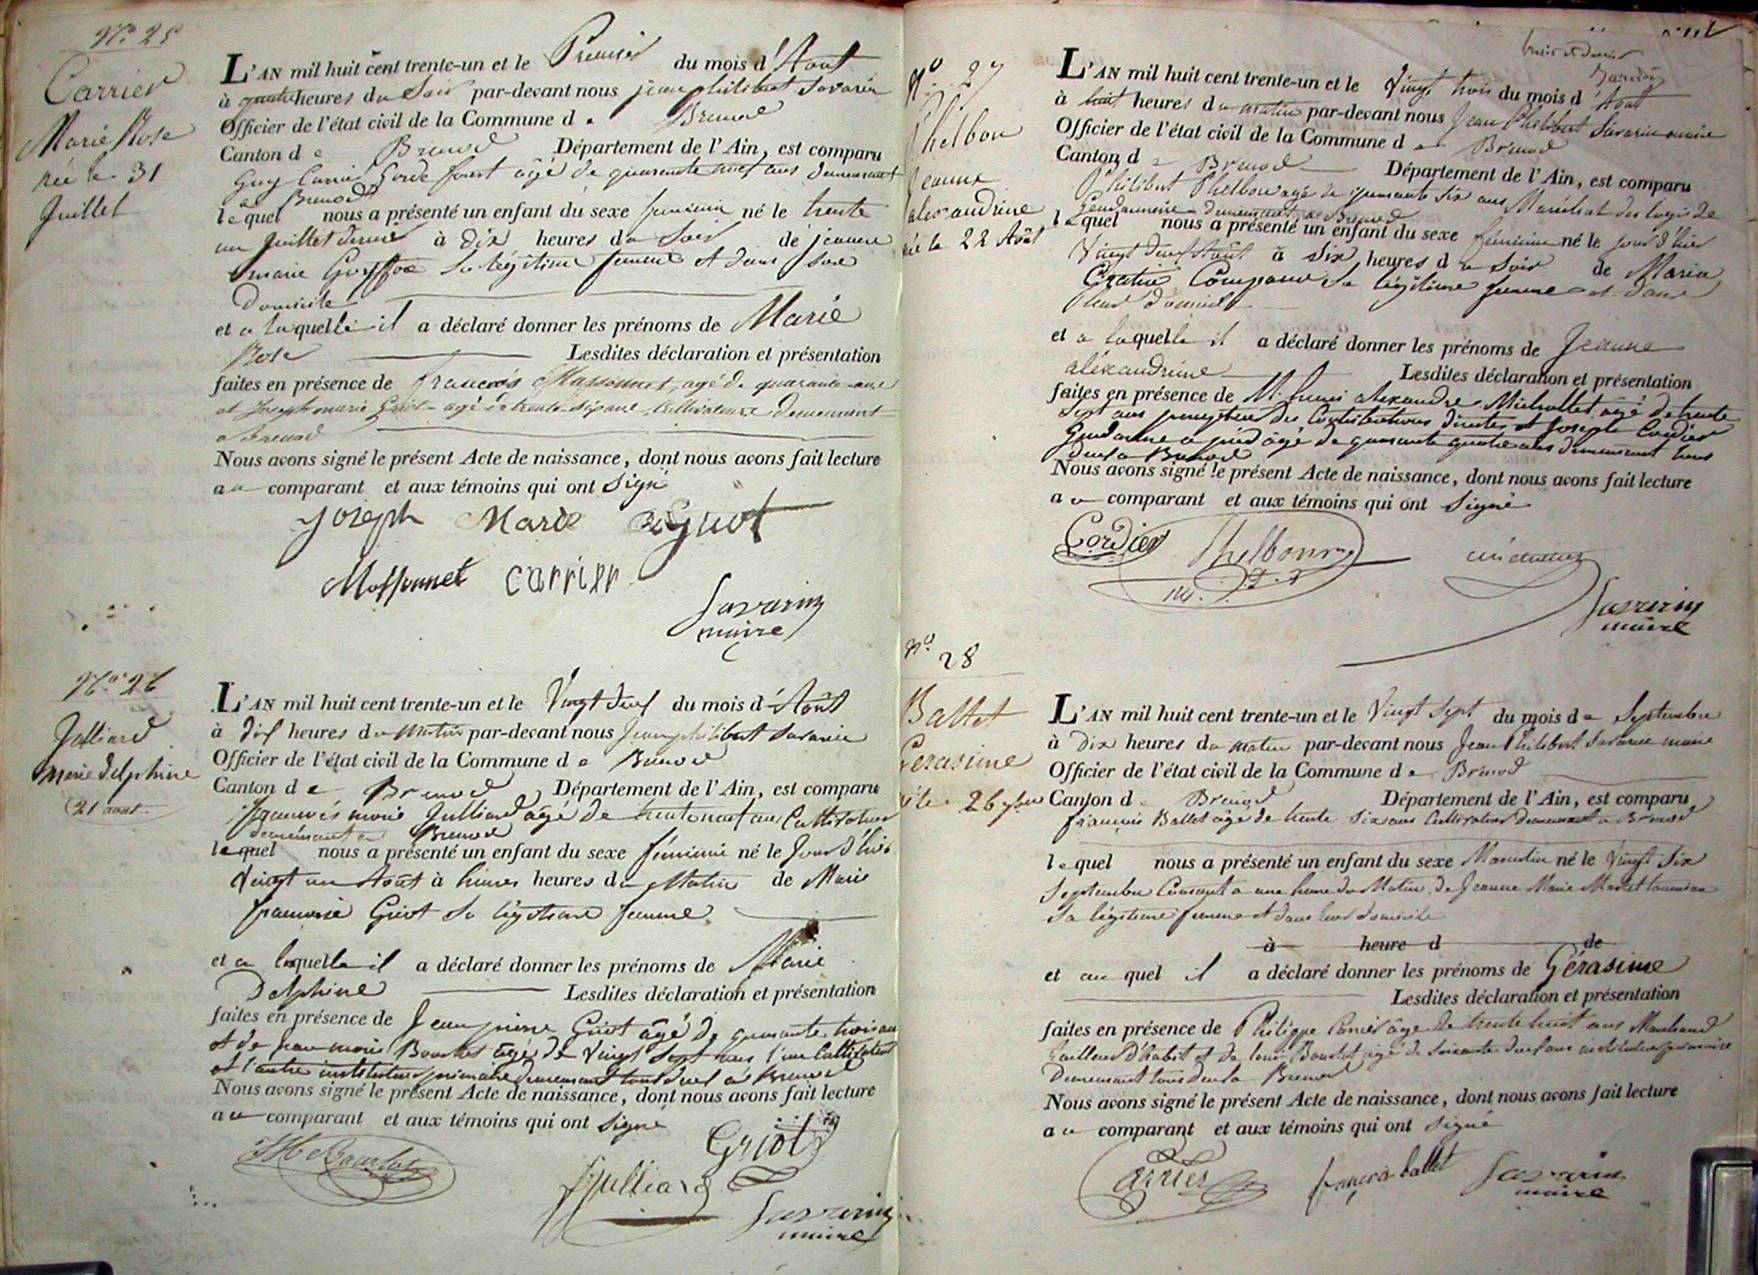 N.º 25
Carrier
Marie Rose
née le 31
Juillet
L'AN mil huit cent trente-un et le Premier du mois d'Août
à quatre heures du Soir par-devant nous jean philibert Savarin
Officier de l'état civil de la Commune de Brenod
Canton de Brenod Département de l'Ain, est comparu
Guy Carrier Garde forest âgé de quarante neuf ans demeurant
à Brenod
lequel nous a présenté un enfant du sexe feminin né le trente
un Juillet dernier à Dix heures du Soir de jeanne
marie sa légitime femme et dans son
Domicile
et a laquelle il a déclaré donner les prénoms de Marie
Rose Lesdites déclaration et présentation
faites en présence de francois Massonnet, agé de quarante ans
et Joseph marie Griot agé de trente six ans Cultivateurs demeurant
a Brenod
Nous avons signé le présent Acte de naissance, dont nous avons fait lecture
au comparant et aux témoins qui ont signé
Joseph Marie Griot
Massonnet Carrier
Savarin
maire
N.º 26
Julliard
marie delphine
21 aout
L'AN mil huit cent trente-un et le Vingt deux du mois d'Août
à dix heures du matin par-devant nous Jean philibert Savarin
Officier de l'état civil de la Commune de Brenod
Canton de Brenod Département de l'Ain, est comparu
françois marie Julliard âgé de trente neuf ans Cultivateur
demeurant a Brenod
lequel nous a présenté un enfant du sexe féminin né le Jour d'hier
Vingt un Août à heures du Matin de Marie
françoise Griot sa légitime femme
et a laquelle il a déclaré donner les prénoms de Marie
Delphine Lesdites déclaration et présentation
faites en présence de Jean pierre Griot âgé de quarante trois ans
et de jean marie Bourlot âgé de Vingt Sept ans l'un Cultivateur
et l'autre instituteur primaire demeurant tous deux a Brenod
Nous avons signé le présent Acte de naissance, dont nous avons fait lecture
au comparant et aux témoins qui ont signé
Griot
JM Bourlot
Julliard
Savarin
maire
N.º 27
Thelbon
Jeanne
alexandrine
née le 22 Août
L'AN mil huit cent trente-un et le Vingt trois du mois d'Août
à huit heures du matin par-devant nous Jean Philibert Savarin maire
Officier de l'état civil de la Commune de Brenod
Canton de Brenod Département de l'Ain, est comparu
Philibert Thelbon agé de quarante six ans Maréchal des logis de
Gendarmerie demeurant a Brenod
lequel nous a présenté un enfant du sexe féminin né le jour d'hier
Vingt deux Août à six heures du Soir de Maria
sa légitime femme et dans
leur domicile
et a laquelle il a déclaré donner les prénoms de Jeanne
aléxandrine Lesdites déclaration et présentation
faites en présence de M. Louis alexandre Michallet agé de trente
sept ans percepteur des Contributions directes et Joseph Cordier
Gendarme a pied âgé de quarante quatre ans demeurant tous
deux a Brenod
Nous avons signé le présent Acte de naissance, dont nous avons fait lecture
au comparant et aux témoins qui ont signé
Cordier Thelbon
Savarin
maire
N.º 28
Ballet
Gerasime
né le 26 7bre
L'AN mil huit cent trente-un et le Vingt Sept du mois de Septembre
à Dix heures du matin par-devant nous Jean Philibert Savarin maire
Officier de l'état civil de la Commune de Brénod
Canton de Brenod Département de l'Ain, est comparu
françois Ballet âgé de trente Six ans Cultivateur demeurant a Brenod
lequel nous a présenté un enfant du sexe Masculin né le Vingt Six
Septembre Courant a une heure du Matin, de Jeanne Marie
sa légitime femme et dans leur domicile
à heure d de
et au quel il a déclaré donner les prénoms de Gérasime
Lesdites déclaration et présentation
faites en présence de Philippe Carrier âgé de trente huit ans Marchand
Tailleur D'habit et de louis Bourlot agé de Soixante deux ans instituteur primaire
Demeurant tous deux a Brenod
Nous avons signé le présent Acte de naissance, dont nous avons fait lecture
au comparant et aux témoins qui ont signé
Carrier françois ballet Savarin
maire